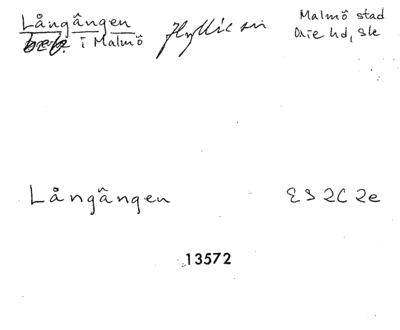 Långången Malmö stad
beb. i Malmö Hyllie sn Oxie hd, Sk
Långången ES 2C 2e
13572